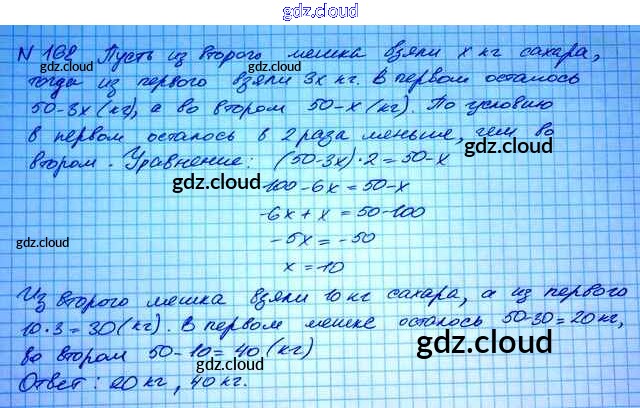 gdz.cloud
N 168 Пусть из второго мешка взяли x кг сахара,
тогда из первого взяли 3x кг. В первом осталось
50-3x (кг), а во втором 50-x (кг). По условию
в первом осталось в 2 раза меньше, чем во
втором. Уравнение: (50-3x)·2=50-x
100-6x=50-x
-6x+x=50-100
-5x=-50
x=10
Из второго мешка взяли 10 кг сахара, а из первого
10·3=30(кг). В первом мешке осталось 50-30=20кг,
во втором 50-10=40(кг)
Ответ: 20кг, 40кг.
gdz.cloud
gdz.cloud
gdz.cloud
gdz.cloud
gdz.cloud
gdz.cloud
gdz.cloud
gdz.cloud
gdz.cloud